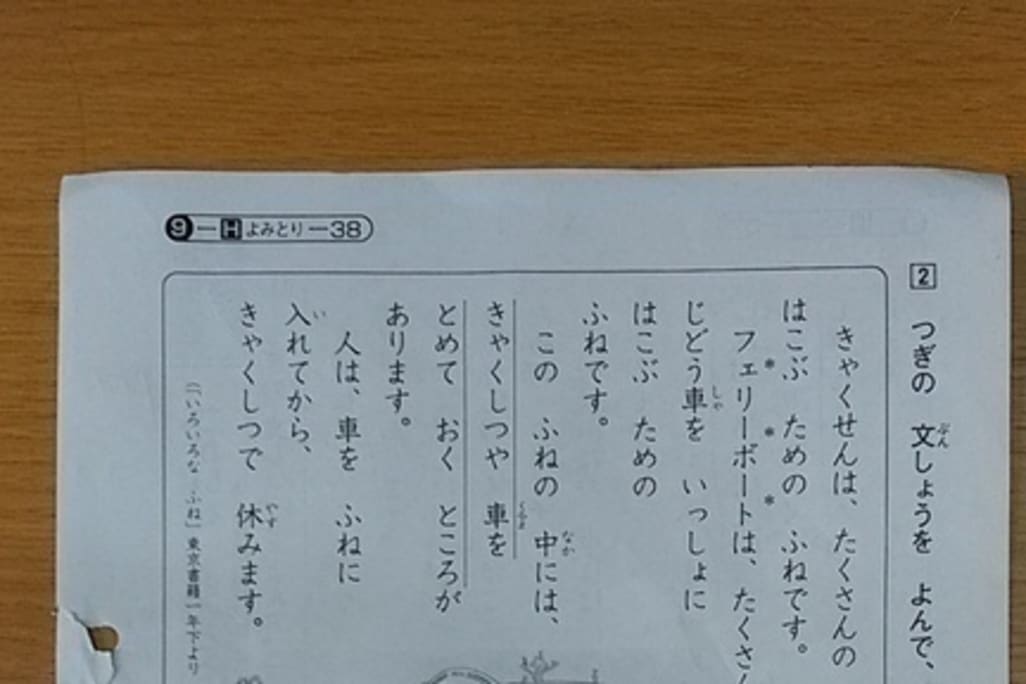 9-Hよみとり-38
2 つぎの 文しょうを よんで、
きゃくせんは、たくさんの
はこぶ ための ふねです。
フェリーボートは、たくさ
じどう車を いっしょに
はこぶ ための
ふねです。
この ふねの 中には、
きゃくしつや 車を
とめて おく ところが
あります。
人は、車を ふねに
入れてから、
きゃくしつで 休みます。
(「いろいろな ふね」東京書籍一年下より